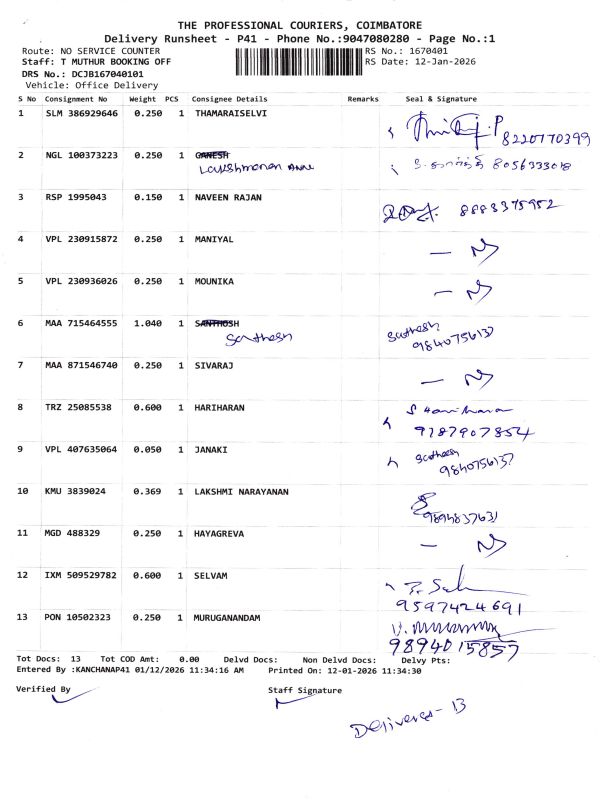 THE PROFESSIONAL COURIERS, COIMBATORE
Delivery Runsheet - P41 - Phone No.:9047080280 - Page No.:1
Route: NO SERVICE COUNTER
RS No.: 1670401
Staff: T MUTHUR BOOKING OFF
RS Date: 12-Jan-2026
DRS No.: DCJB167040101
Vehicle: Office Delivery
S No Consignment No Weight PCS Consignee Details Remarks Seal & Signature
1 SLM 386929646 0.250 1 THAMARAISELVI
8220770399
2 NGL 100373223 0.250 1 GANESH
Lakshmanan 8056333018
3 RSP 1995043 0.150 1 NAVEEN RAJAN
8883375952
4 VPL 230915872 0.250 1 MANIYAL
5 VPL 230936026 0.250 1 MOUNIKA
6 MAA 715464555 1.040 1 SANTHOSH
Sathesh Sathesh
9840756137
7 MAA 871546740 0.250 1 SIVARAJ
8 TRZ 25085538 0.600 1 HARIHARAN
9787907854
9 VPL 407635064 0.050 1 JANAKI Sathesh
9840756137
10 KMU 3839024 0.369 1 LAKSHMI NARAYANAN
9894837631
11 MGD 488329 0.250 1 HAYAGREVA
12 IXM 509529782 0.600 1 SELVAM
9597424691
13 PON 10502323 0.250 1 MURUGANANDAM
9894015857
Tot Docs: 13 Tot COD Amt: 0.00 Delvd Docs: Non Delvd Docs: Delvy Pts:
Entered By :KANCHANAP41 01/12/2026 11:34:16 AM Printed On: 12-01-2026 11:34:30
Verified By Staff Signature
Deliveres - 13